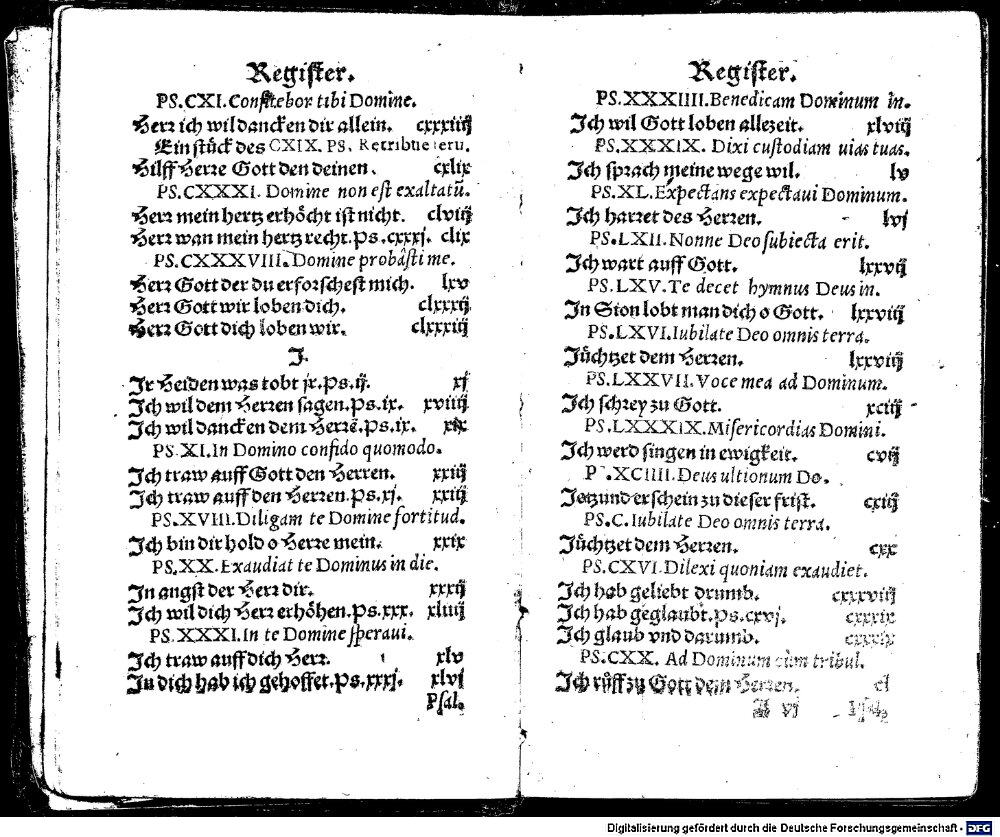 Register.
PS.CXI.Confitebor tibi Domine.
Herr ich wil dancken dir allein. cxxxiiij
Ein stück des CXIX. PS. Retribue seru.
Hilff Herre Gott den deinen. cxlix
PS.CXXXI. Domine non est exaltatū.
Herr mein hertz erhöcht ist nicht. clviij
Herr wan mein hertz recht.Ps.cxxxj. clix
PS.CXXXVIII.Domine probasti me.
Herr Gott der du erforschest mich. lxv
Herr Gott wir loben dich. clxxxij
Herr Gott dich loben wir. clxxxiij
J.
Jr Heiden was tobt jr.Ps.ij. xj
Ich wil dem Herren sagen.Ps.ix. xviiij
Ich wil dancken dem Herrē.Ps.ix. xix
PS.XI.In Domino confido quomodo.
Ich traw auff Gott den Herren. xxiij
Ich traw auff den Herren.Ps.xj. xxiij
PS.XVIII.Diligam te Domine fortitud.
Ich bin dir hold o Herre mein. xxix
PS.XX.Exaudiat te Dominus in die.
In angst der Herr dir. xxxij
Ich wil dich Herr erhöhen.Ps.xxx. xliiij
PS.XXXI.In te Domine speraui.
Ich traw auff dich Herr. xlv
In dich hab ich gehoffet.Ps.xxxj. xlvj
Psal.
Register.
PS.XXXIIII.Benedicam Dominum in.
Ich wil Gott loben allezeit. xlviij
PS.XXXIX. Dixi custodiam uias tuas.
Ich sprach meine wege wil. lv
PS.XL.Expectans expectaui Dominum.
Ich harret des Herren. lvj
PS.LXII.Nonne Deo subiecta erit.
Ich wart auff Gott. lxxvij
PS.LXV.Te decet hymnus Deus in.
In Sion lobt man dich o Gott. lxxviij
PS.LXVI.Iubilate Deo omnis terra.
Jüchtzet dem Herren. lxxviij
PS.LXXVII.Voce mea ad Dominum.
Ich schrey zu Gott. xciij
PS.LXXXIX.Misericordias Domini.
Ich werd singen in ewigkeit. cvij
P .XCIIII.Deus ultionum Do.
Jetzund erschein zu dieser frist. cxiij
PS.C.Iubilate Deo omnis terra.
Jüchtzet dem Herren. cxx
PS.CXVI.Dilexi quoniam exaudiet.
Ich hab geliebt drumb. cxxxviij
Ich hab geglaubt.Ps.cxvj. cxxxix
Ich glaub vnd darumb. cxxxix
PS.CXX. Ad Dominum cùm tribul.
Ich rüff zu Gott dem Herren. cl
vj Psal.
Digitalisierung gefördert durch die Deutsche Forschungsgemeinschaft - DFG